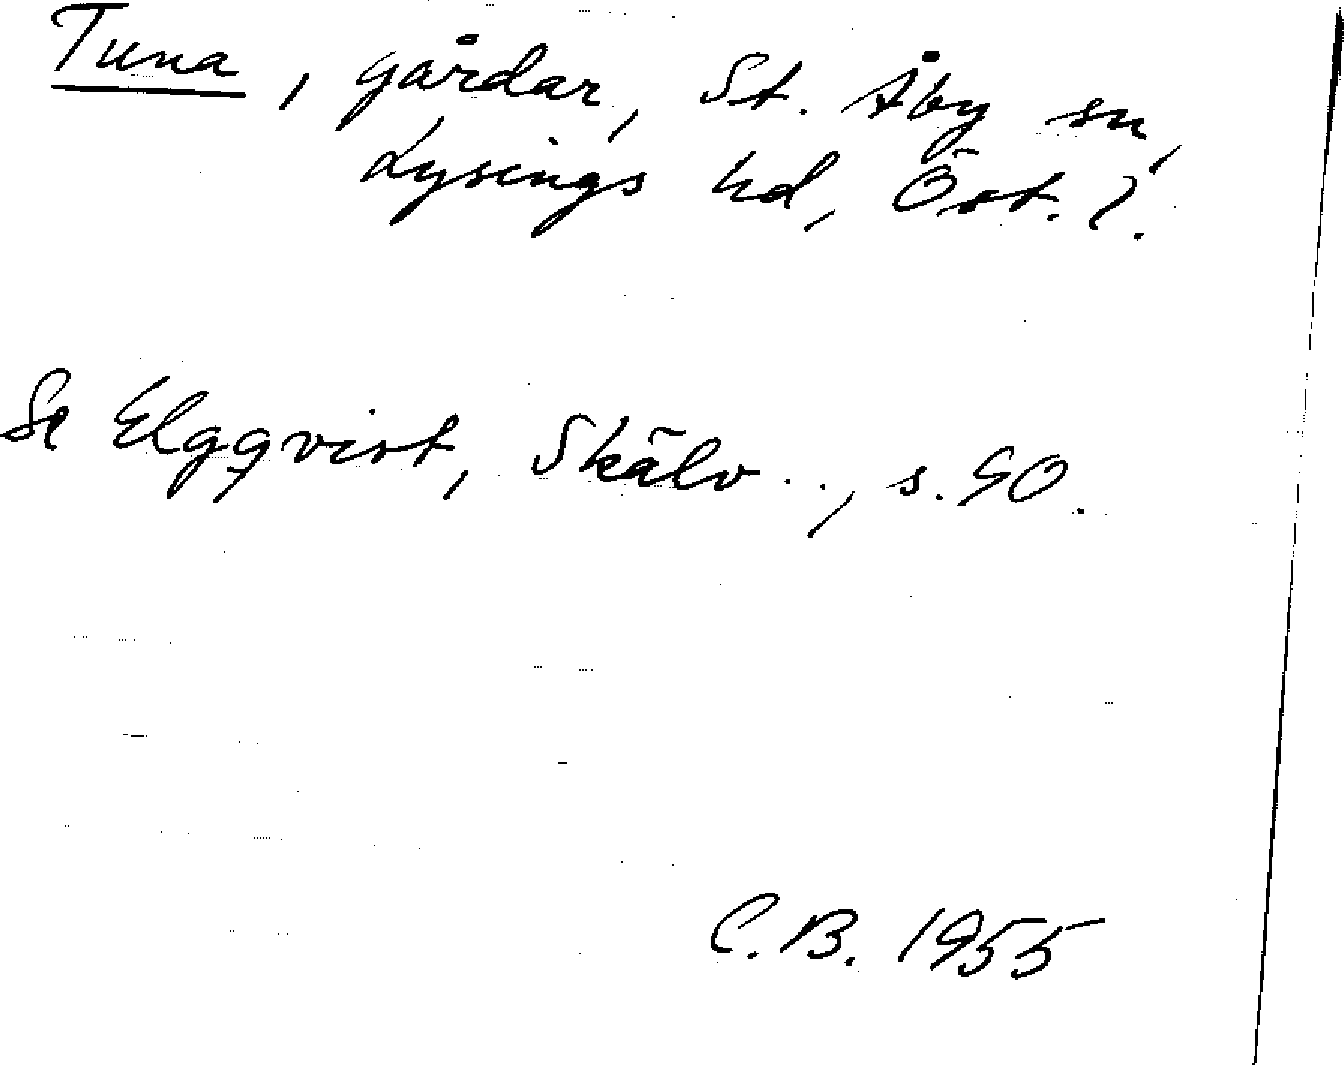 Tuna, gårdar, St. Åby sn,
Lysings hd, Öst. l.
Se Elgqvist, Skälv.., s. 90.
C.B. 1955